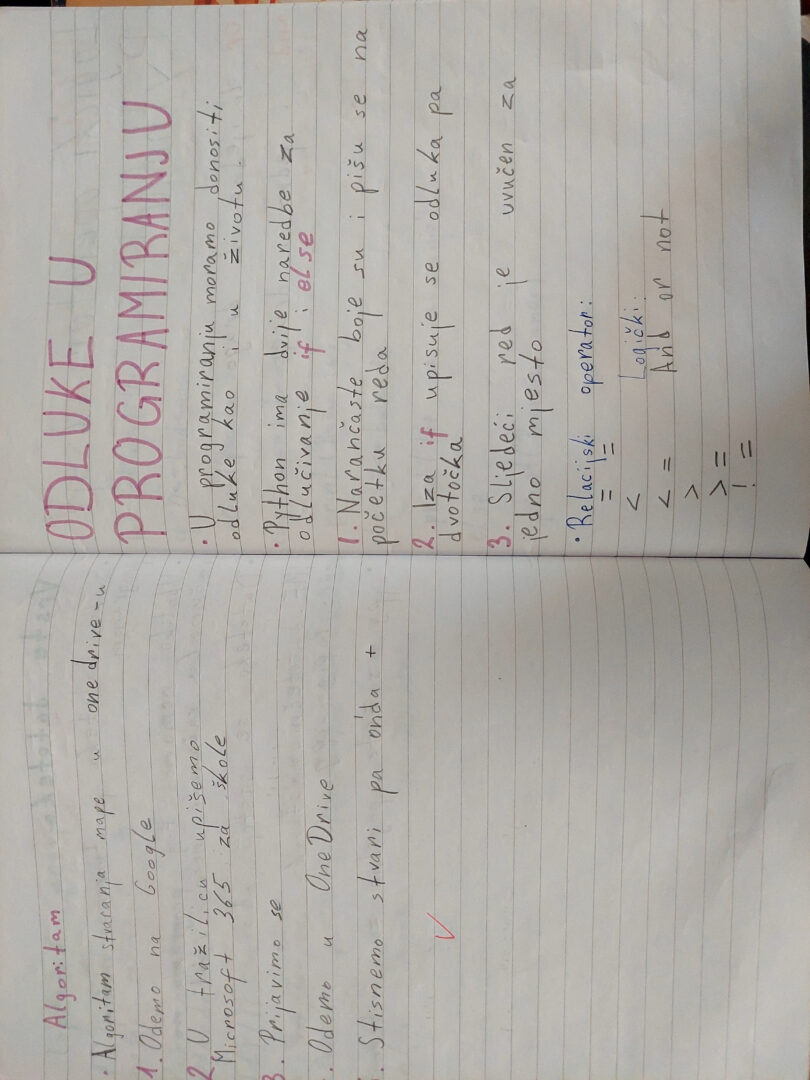 Algoritam
• Algoritam stvaranja mape u one drive-u
1. Odemo na Google
2. U tražilicu upišemo
Microsoft 365 za škole
3. Prijavimo se
. Odemo u OneDrive
. Stisnemo stvari pa onda +
ODLUKE U
PROGRAMIRANJU
• U programiranju moramo donositi
odluke kao i u životu.
• Python ima dvije naredbe za
odlučivanje if i else
1. Narančaste boje su i pišu se na
početku reda
2. Iza if upisuje se odluka pa
dvotočka
3. Sljedeći red je uvučen za
jedno mjesto
• Relacijski operatori:
= =
< Logički:
< = And or not
>
> =
! =